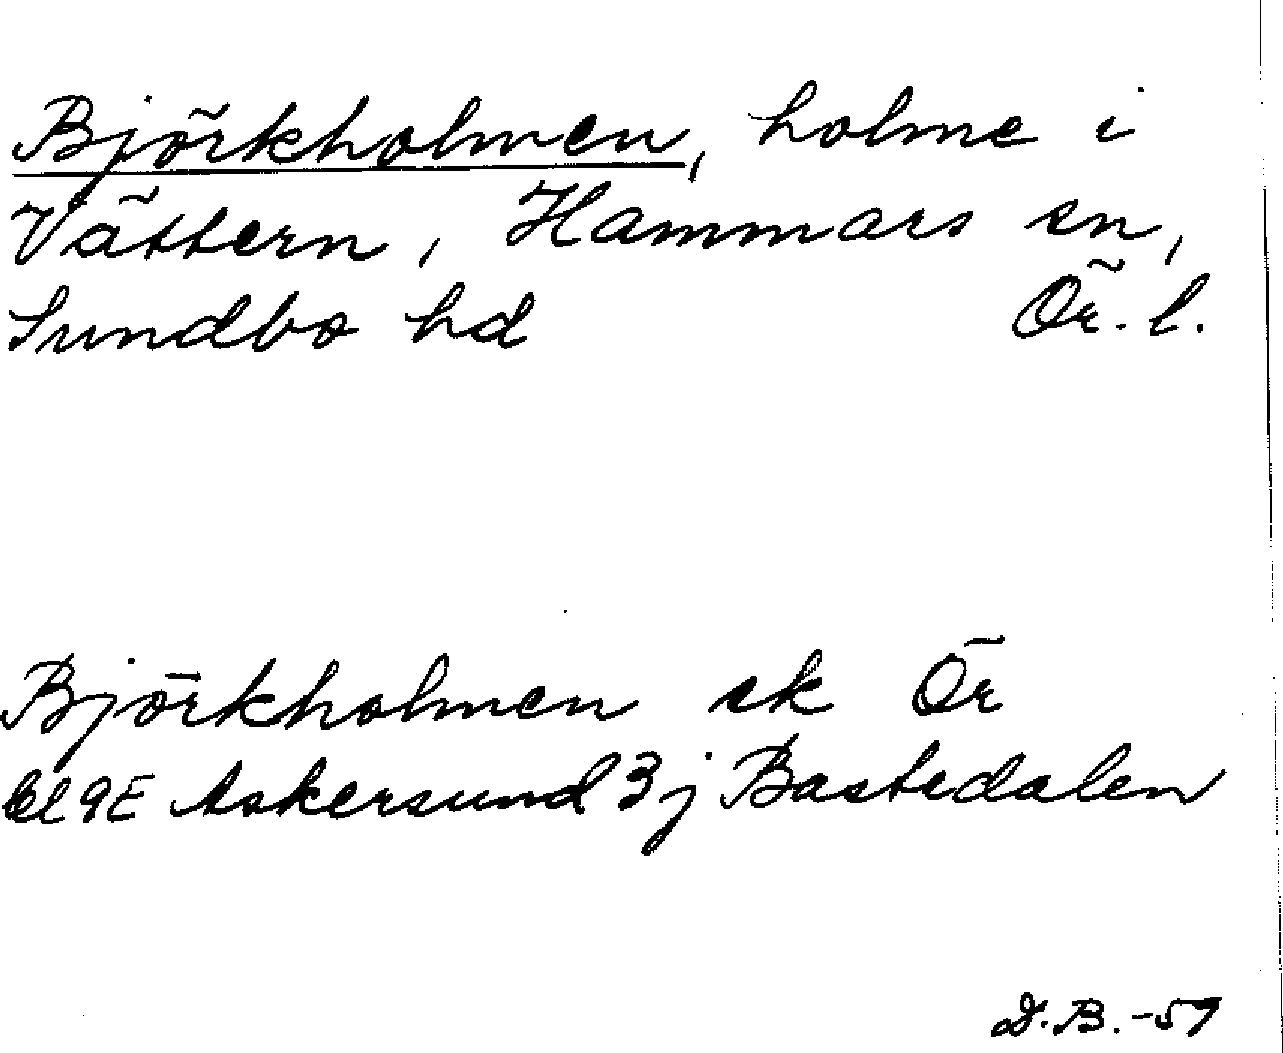 Björkholmen, holme i
Vättern, Hammars sn,
Sundbo hd Ör. l.
Björkholmen ek Ör
9E Askersund 3j Bastedalen
D.B.-57